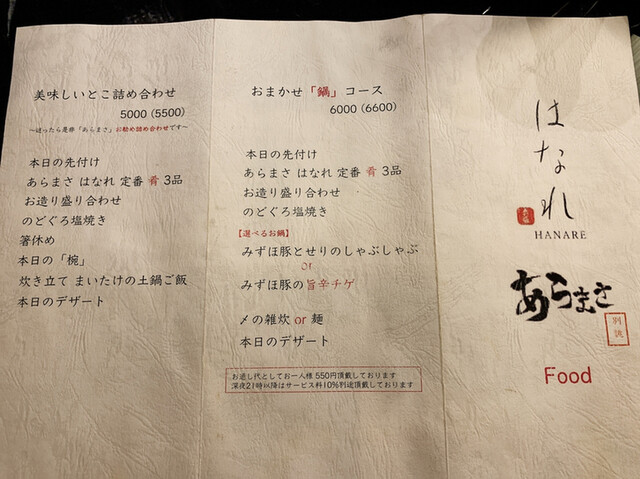 美味しいとこ詰め合わせ
5000 (5500)
～迷ったら是非「あらまさ」お勧め詰め合わせです～
本日の先付け
あらまさ はなれ 定番 肴 3品
お造り盛り合わせ
のどぐろ塩焼き
箸休め
本日の「椀」
炊き立て まいたけの土鍋ご飯
本日のデザート
おまかせ「鍋」コース
6000 (6600)
本日の先付け
あらまさ はなれ 定番 肴 3品
お造り盛り合わせ
のどぐろ塩焼き
【選べるお鍋】
みずほ豚とせりのしゃぶしゃぶ
or
みずほ豚の旨辛チゲ
〆の雑炊 or 麺
本日のデザート
お通し代としてお一人様 550円頂戴しております
深夜21時以降はサービス料10%別途頂戴しております
はなれ
HANARE
あらまさ
別誂
Food